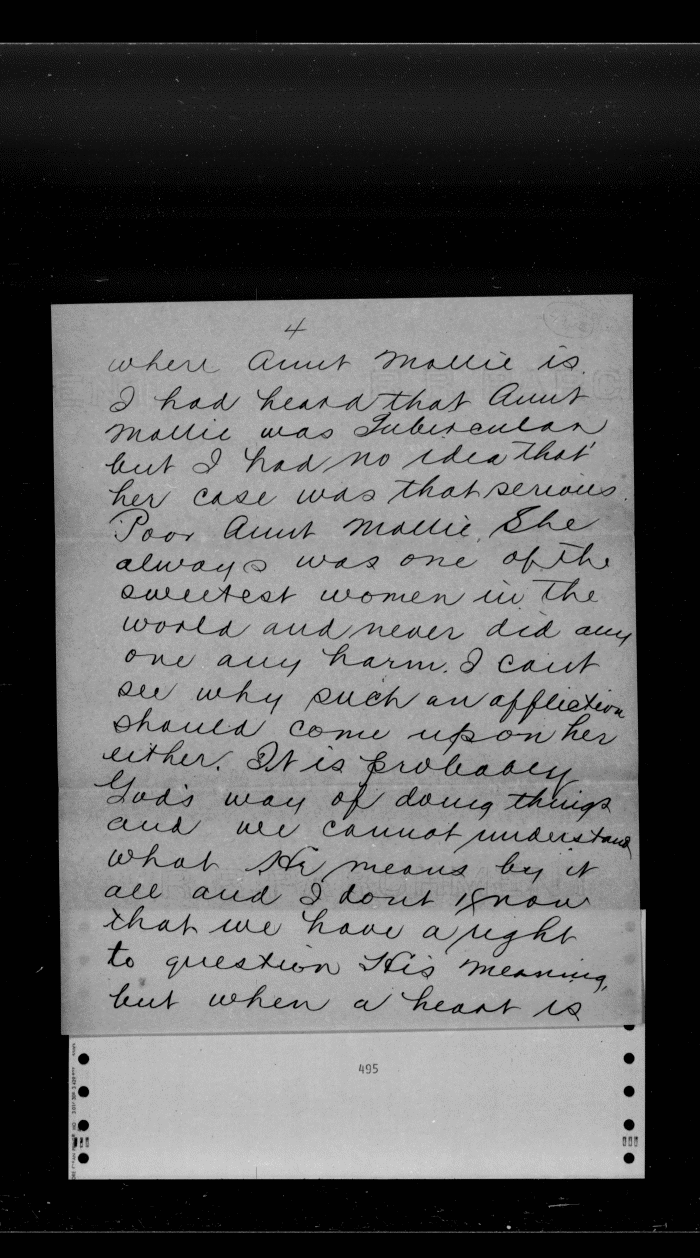 4
where Aunt Mollie is.
I had heard that Aunt
Mollie was Tubercular
but I had no idea that
her case was that serious.
Poor Aunt Mollie. She
always was one of the
sweetest women in the
world and never did any
one any harm. I cant
see why such an affliction
should come upon her
either. It is probably
God's way of doing things
and we cannot understand
what He means by it
all and I dont know
that we have a right
to question His meaning,
but when a heart is
495